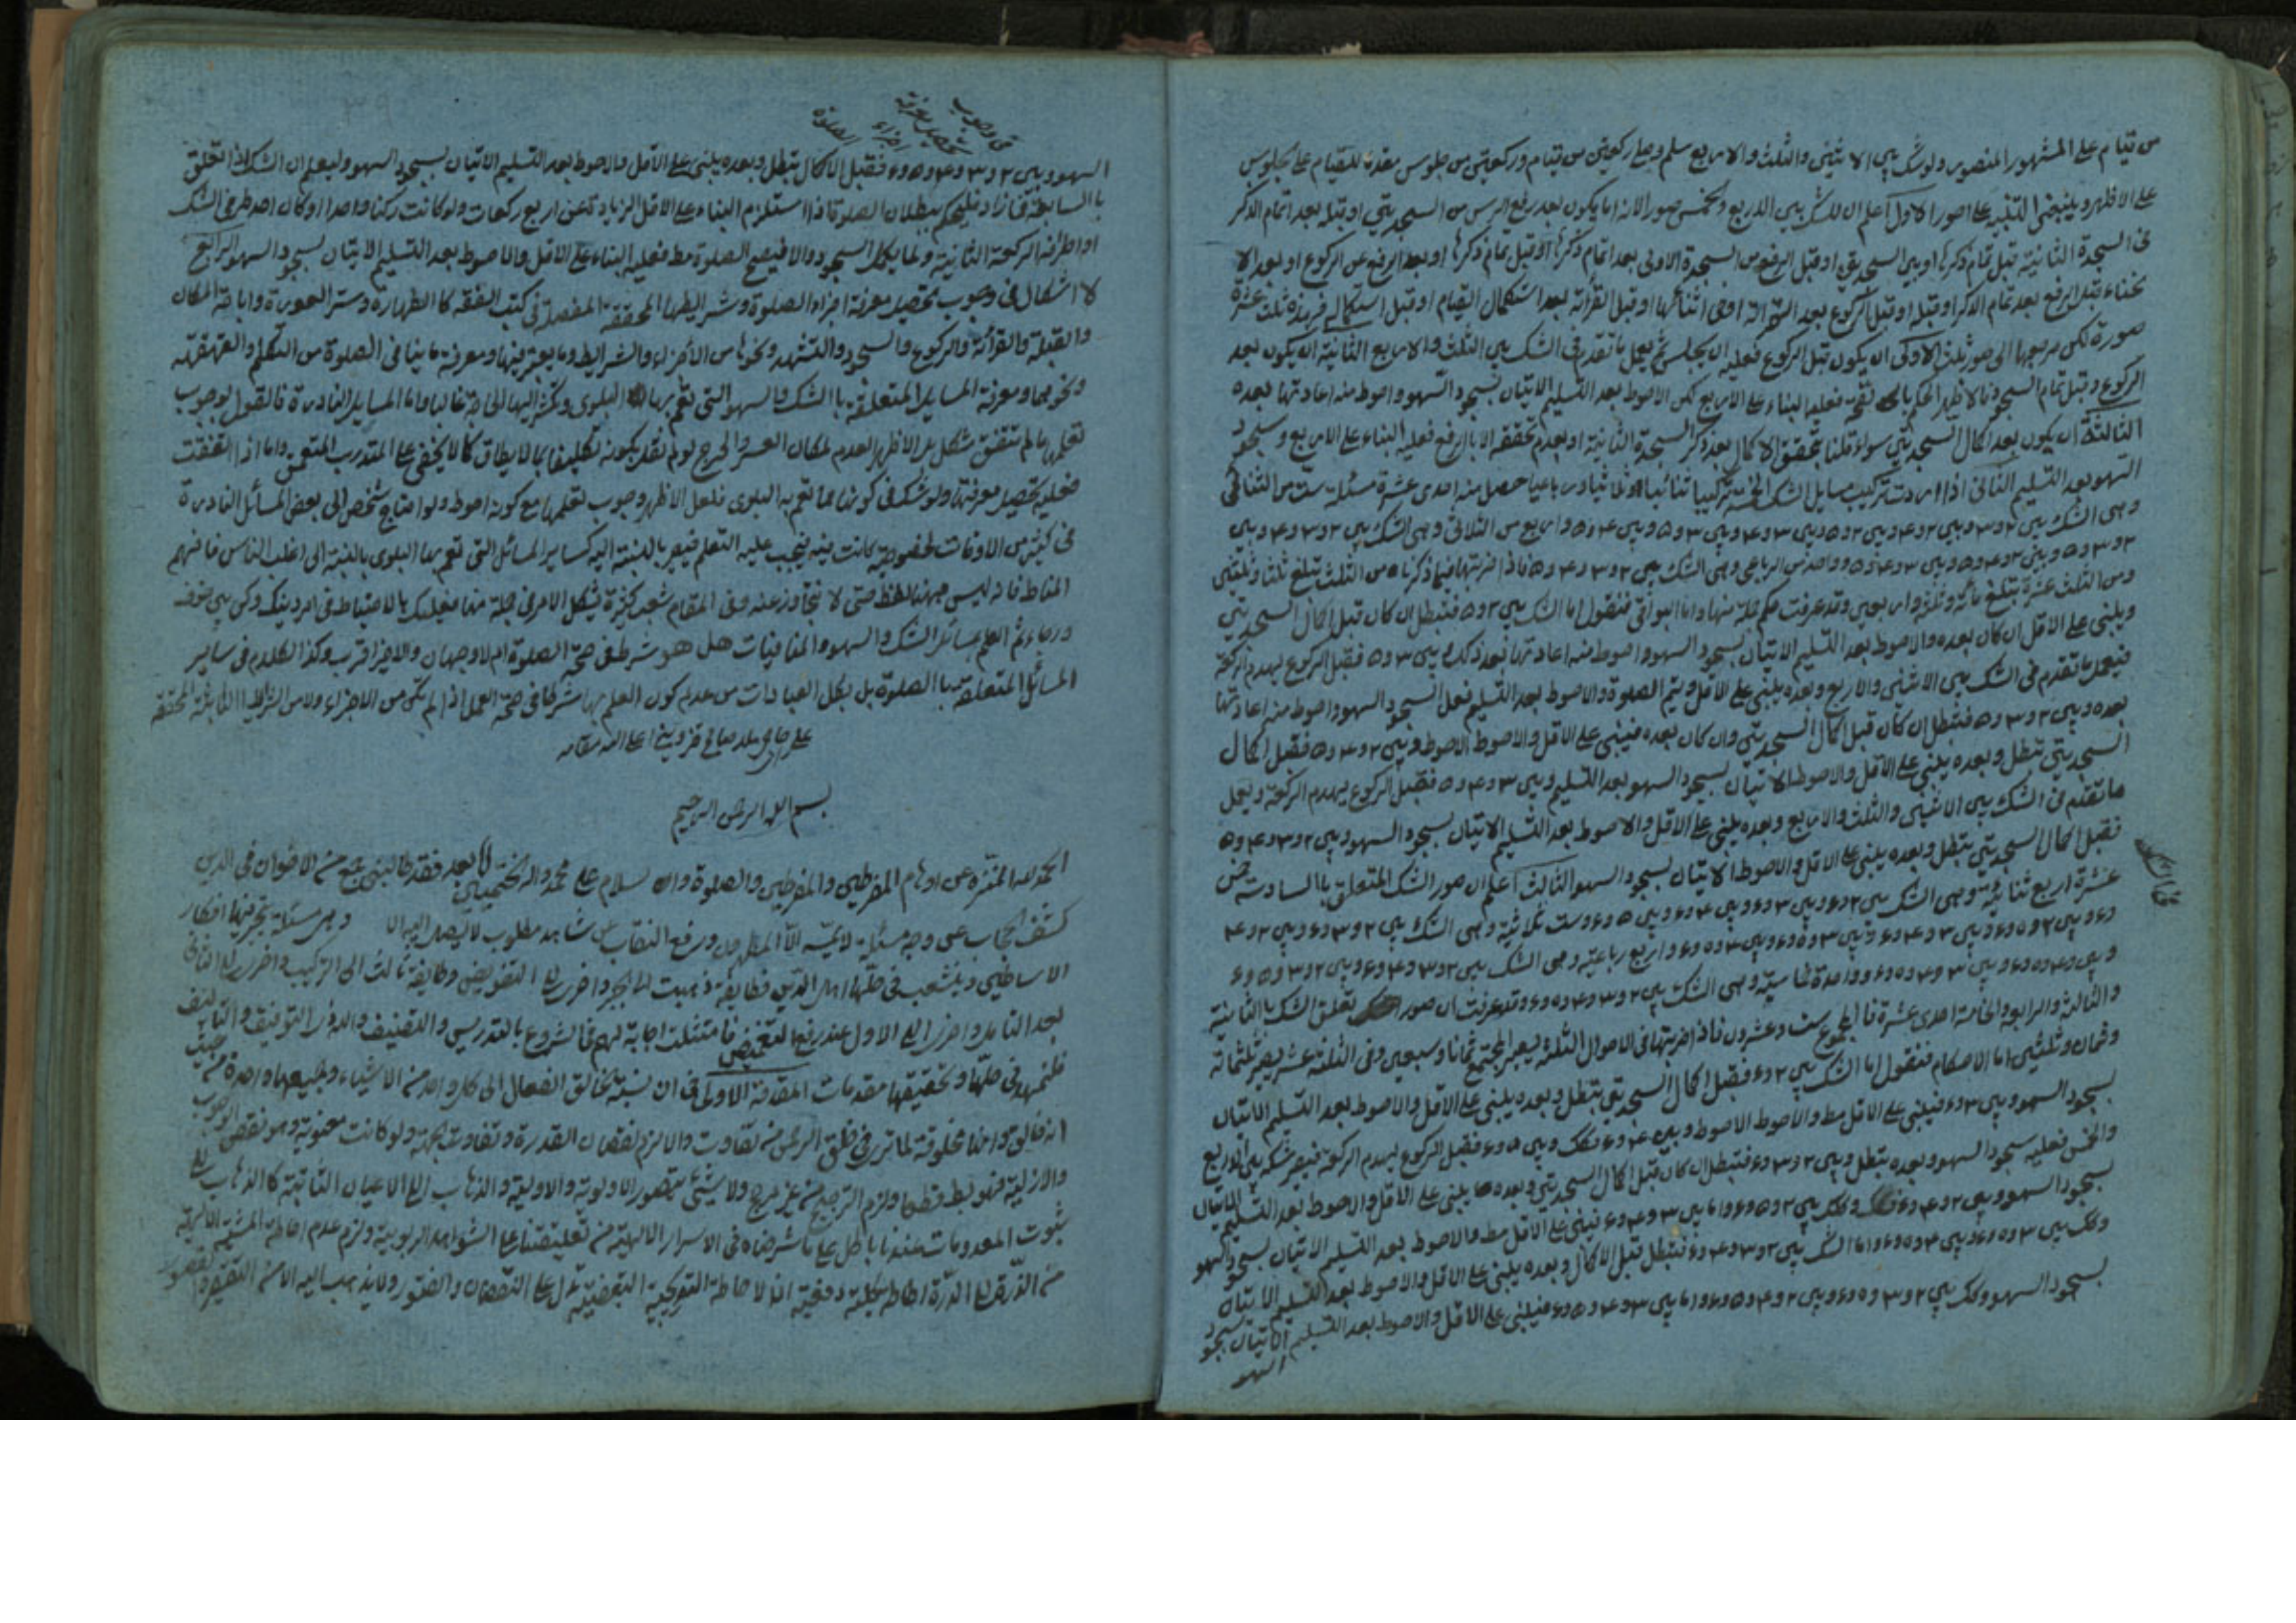 من قيام على المشهور المنصور ولو شك بين الاثنين والثلث والاربع سلم وصلى ركعتين من قيام وركعتين من جلوس مقدما للقيام على الجلوس
على الاظهر وينبغى التنبيه على امور الاول اعلم ان للشك بين الاربع والخمس صور لانه اما يكون بعد رفع الرأس من السجدتين او قبله بعد اتمام الذكر
فى السجدة الثانية قبل تمام ذكرها او بين السجدتين او قبل الرفع من السجدة الاولى بعد اتمام ذكرها او قبل تمام ذكرها او بعد الرفع عن الركوع او بعد الا
نحناء قبل الرفع بعد تمام الذكر او قبله او قبل الركوع بعد القرائة او فى اثنائها او قبل القرائة بعد استكمال القيام او قبل استكماله فهذه ثلث عشرة
صورة لكن مرجعها الى صور ثلث الاولى ان يكون قبل الركوع فعليه ان يجلس ثم يعمل ما تقدم فى الشك بين الثلث والاربع الثانية ان يكون بعد
الركوع وقبل تمام السجود فالاظهر الحكم بالصحة فعليه البناء على الاربع لكن الاحوط بعد التسليم الاتيان بسجود السهو واحوط منه اعادتها بعده
الثالثة ان يكون بعد اكمال السجدتين سواء قلنا بتحقق الاكمال بعد ذكر السجدة الثانية او بعدم تحققه الا بالرفع فعليه البناء على الاربع وسجود
السهو بعد التسليم الثانى اذا اردت تركيب مسايل الشك الخمسة تركيبا ثنائيا وثلاثيا ورباعيا حصل منه احدى عشرة مسئلة ست من الثنائى
وهى الشك بين ٢ و٣ وبين ٢ و٤ وبين ٢ و٥ وبين ٣ و٤ وبين ٣ و٥ وبين ٤ و٥ واربع من الثلاثى وهى الشك بين ٢ و٣ و٤ وبين
٢ و٣ و٥ وبين ٢ و٤ و٥ وبين ٣ و٤ و٥ وواحد من الرباعى وهى الشك بين ٢ و٣ و٤ و٥ فاذا ضربتها فيما ذكرناه من الثلث تبلغ ثلثا وثلثين
ومن الثلث عشرة تبلغ مأئة وثلثة واربعين وقد عرفت حكم جملة منها واما البواقى فنقول اما الشك بين ٢ و٥ فتبطل ان كان قبل اكمال السجدتين
ويبنى على الاقل ان كان بعده والاحوط بعد التسليم الاتيان بسجود السهو واحوط منه اعادتها بعد ذلك وبين ٣ و٥ فقبل الركوع يهدم الركعة
فيعمل ما تقدم فى الشك بين الاثنين والاربع وبعده يبنى على الاقل ويتم الصلوة والاحوط بعد التسليم فعل السجود السهو واحوط منه اعادتها
بعده وبين ٢ و٣ و٥ فتبطل ان كان قبل اكمال السجدتين وان كان بعده فيبنى على الاقل والاحوط الاحوط وبين ٢ و٤ و٥ فقبل اكمال
السجدتين تبطل وبعده يبنى على الاقل والاحوط الاتيان بسجود السهو بعد التسليم وبين ٣ و٤ و٥ فقبل الركوع يهدم الركعة ويعمل
ما تقدم فى الشك بين الاثنين والثلث والاربع وبعده يبنى على الاقل والاحوط بعد التسليم الاتيان بسجود السهو وبين ٢ و٣ و٤ و٥
فقبل اكمال السجدتين تبطل وبعده يبنى على الاقل والاحوط الاتيان بسجود السهو الثالث اعلم ان صور الشك المتعلق بالسادسة خمس
عشرة اربع ثنائية وهى الشك بين ٢ و٦ وبين ٣ و٦ وبين ٤ و٦ وبين ٥ و٦ وست ثلاثية وهى الشك بين ٢ و٣ و٦ وبين ٢ و٤
و٦ وبين ٢ و٥ و٦ وبين ٣ و٤ و٦ وبين ٣ و٥ و٦ وبين ٤ و٥ و٦ واربع رباعية وهى الشك بين ٢ و٣ و٤ و٦ وبين ٢ و٣ و٥ و٦
وبين ٢ و٤ و٥ و٦ وبين ٣ و٤ و٥ و٦ وواحدة خماسية وهى الشك بين ٢ و٣ و٤ و٥ و٦ وقد عرفت ان صور تعلق الشك بالثانية
والثالثة والرابعة والخامسة احدى عشرة فالمجموع ست وعشرون فاذا ضربتها فى الاحوال الثلثة يصير المجتمع ثمانا وسبعين وفى الثلثة عشر يصير ثلثمائة
وثمان وثلثين اما الاحكام فنقول اما الشك بين ٢ و٦ فقبل اكمال السجدتين تبطل وبعده يبنى على الاقل والاحوط بعد التسليم الاتيان
بسجود السهو وبين ٣ و٦ فيبنى على الاقل مط والاحوط الاحوط وبين ٤ و٦ فكك وبين ٥ و٦ فقبل الركوع يهدم الركعة فيصير شكه بين الاربع
والخمس فعليه سجود السهو وبعده تبطل وبين ٢ و٣ و٦ فتبطل ان كان قبل اكمال السجدتين وبعده يبنى على الاقل والاحوط بعد التسليم الاتيان
بسجود السهو وبين ٢ و٤ و٦ وكك بين ٢ و٥ و٦ واما بين ٣ و٤ و٦ فيبنى على الاقل مط والاحوط بعد التسليم الاتيان بسجود السهو
وكك بين ٣ و٥ و٦ وبين ٤ و٥ و٦ واما الشك بين ٢ و٣ و٤ و٦ فتبطل قبل الاكمال وبعده يبنى على الاقل والاحوط بعد التسليم الاتيان
بسجود السهو وكك بين ٢ و٣ و٥ و٦ وبين ٢ و٤ و٥ و٦ واما بين ٣ و٤ و٥ و٦ فيبنى على الاقل والاحوط بعد التسليم الاتيان بسجود
السهو
فى وجوب
تحصيل معرفة
اجزاء
الصلوة
السهو وبين ٢ و٣ و٤ و٥ و٦ فقبل الاكمال تبطل وبعده يبنى على الاقل والاحوط بعد التسليم الاتيان بسجود السهو وليعلم ان الشك اذا تعلق
بالسابعة فما زاد فليحكم ببطلان الصلوة اذا استلزم البناء على الاقل الزيادة عن اربع ركعات ولو كانت ركنا واحدا او كان احد طرفى الشك
او اطرافه الركعة الثانية ولما يكمل السجود والا فيصح الصلوة مط فعليه البناء على الاقل والاحوط بعد التسليم الاتيان بسجود السهو الرابع
لا اشكال فى وجوب تحصيل معرفة اجزاء الصلوة وشرايطها المحققة المفصلة فى كتب الفقه كالطهارة وستر العورة واباحة المكان
والقبلة والقرائة والركوع والسجود والتشهد ونحوها من الأجزاء والشرايط وما يعتبر فيها ومعرفة ما ينافى الصلوة من التكلم والقهقهة
ونحوهما ومعرفة المسايل المتعلقة بالشك والسهو التى تعم بها البلوى وتكثر اليها الحاجة غالبا واما المسايل النادرة فالقول بوجوب
تعلمها ما لم تتفق مشكل بل الاظهر العدم لمكان العسر والحرج لو لم نقل بكونه تكليفا بما لا يطاق كما لا يخفى على المتدرب المتعمق واما اذا اتفقت
فعليه تحصيل معرفتها ولو شك فى كونها مما تعم به البلوى فلعل الاظهر وجوب تعلمها مع كونه احوط ولو احتاج شخص الى بعض المسائل النادرة
فى كثير من الاوقات لخصوصية كانت فيه فيجب عليه التعلم فيصير بالنسبة اليه كساير المسائل التى تعم بها البلوى بالنسبة الى اغلب الناس فافهم
المناط فانه ليس ههنا لفظ حتى لا نتجاوز عنه وفى المقام شعب كثيرة يشكل الامر فى جملة منها فعليك بالاحتياط فى امر دينك وكن بين خوف
ورجاء ثم العلم بمسائل الشك والسهو والمنافيات هل هو شرط فى صحة الصلوة ام لا وجهان والاخير اقرب وكذا الكلام فى ساير
المسائل المتعلقة بالصلوة بل بكل العبادات من عدم كون العلم بها شرطا فى صحة العمل اذا لم تكن من الاجزاء ولا من الشرايط المحققة
صالح قزوينى اعلى الله مقامه
بسم الله الرحمن الرحيم
الحمد لله المنزه عن اوهام المفرطين والمفرّطين والصلوة والسلام على محمد واله اما بعد فقد طالبنى جمع من الاخوان فى الدين
كشف الحجاب عن وجه مسئلة لا يمسه الا المطهرون ورفع النقاب عن شاهد مطلوب لا يصل اليه الا وهى مسئلة تتحير فيها افكار
الاساطين وينشعب فى حلها اهل الدين فطايفة ذهبت الى الجبر واخرى الى التفويض وطايفة مالت الى التركيب واخرى الى الثانى
بعد التامل واخرى الى الاول عند رفع فامتثلت اجابة لهم فى الشروع بالتدريس والتصنيف والتاليف
فلنمهد فى حلها وتحقيقها مقدمات المقدمة الاولى فى ان نسبة خالق الفعال الى كل واحد من الاشياء وجميعها واحدة من حيث
انه خالق وانها مخلوقة لما ترى فى خلق الرحمن من تفاوت والا لزم نقصان القدرة وتفاوت الجهة ولو كانت معنوية وهو نقص الوجوب
والازلية ولزم الترجيح من غير مرجح ولا شىء يتصور الاولوية والاولية والذهاب الى الاعيان الثابتة كالذهاب الى
ثبوت المعدومات عندنا باطل على ما شرحناه فى الاسرار الالهية من تعليقتنا على الشواهد الربوبية ولزم عدم احاطة المشية الالهية
من الذرة الى الدرة احاطة كلية دفعية اذ الاحاطة التدريجية التبعضية تدل على النقصان والفتور ولا يذهب اليه الا من